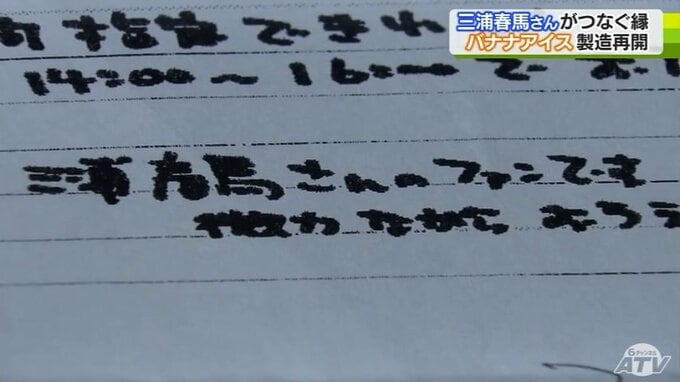 三浦春馬さんがつなぐ縁
バナナアイス 製造再開
指定できれ
14:00～16:00で お
三浦春馬さんのファンです
微力ながら おうえ
6チャンネル
ATV